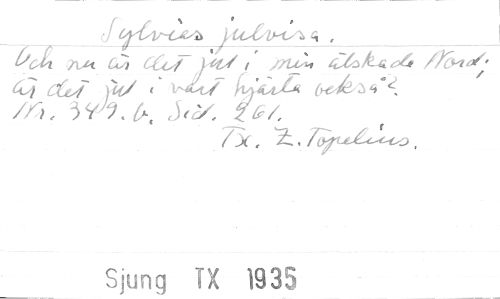 Sylvias julvisa.
Och nu är det jul i min älskade Nord;
är det jul i vart hjärta också?
Nr. 349. b. Sid. 261.
Tx. Z. Topelius.
Sjung TX 1935